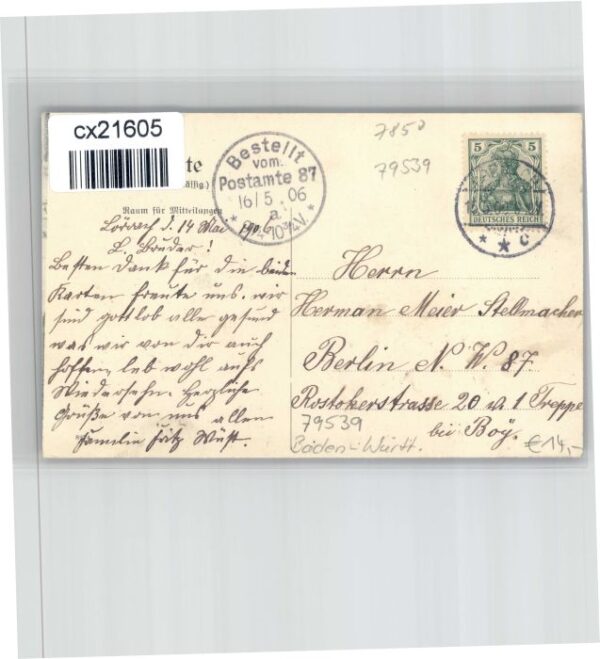 cx21605
te
Bestellt
vom
Postamte 87
16/5.06
a.
7850
79539
5
DEUTSCHES REICH
c
Raum für Mitteilungen
Lörrach d. 14 Mai 1906
L. Bruder!
Besten Dank für die beiden
Karten freute uns, wir
sind gottlob alle gesund
was wir von dir auch
hoffen, leb wohl aufs
Wiedersehn. Herzliche
Grüße von uns allen
Familie Fritz Wüst.
Herrn
Herman Meier Stellmacher
Berlin N. W. 87
Rostokerstrasse 20 v. 1 Treppe
bei Boy.
79539
Baden-Württ.
€ 14,-